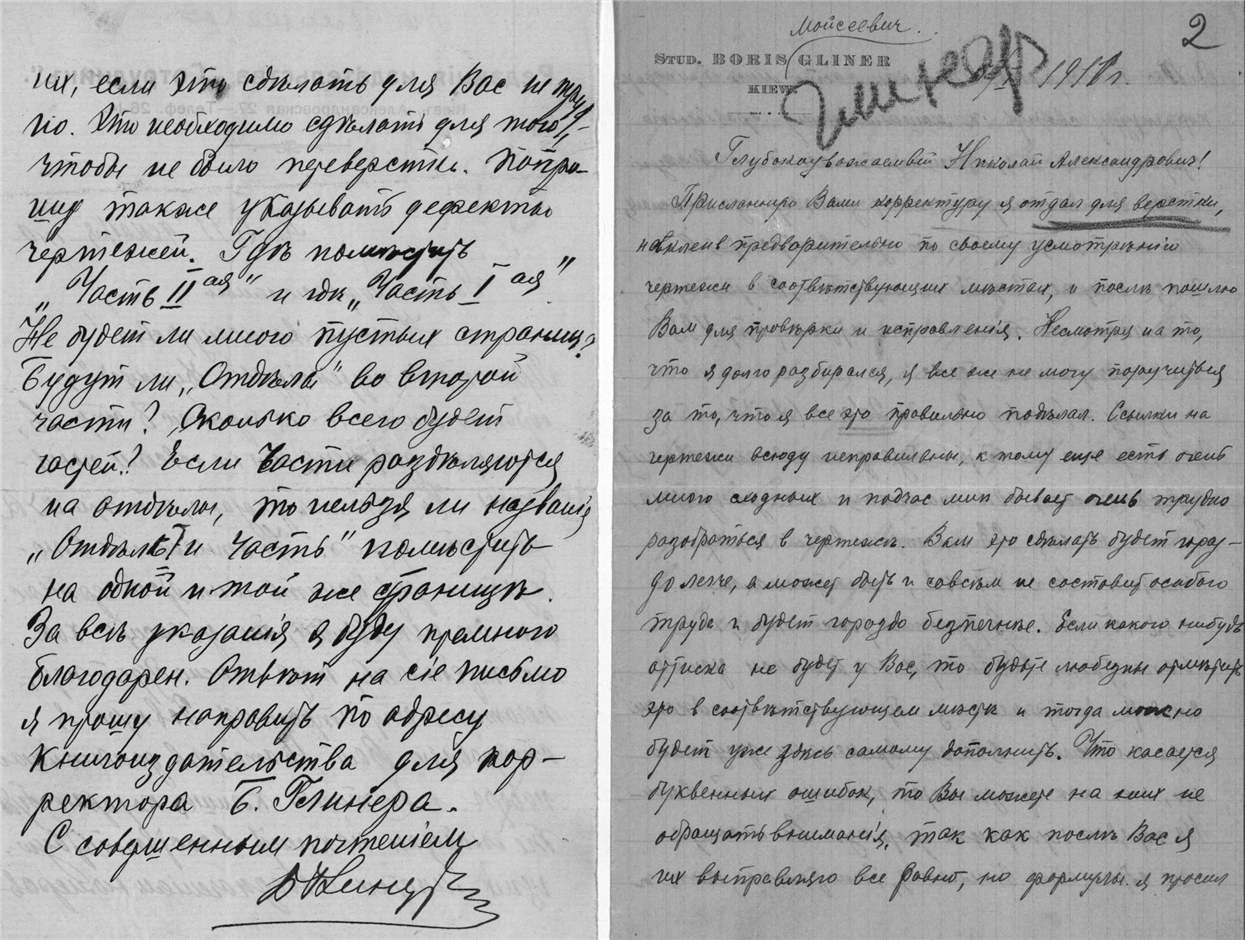 Моисеевич.
2
STUD. BORIS GLINER
KIEW
Глинер
1911 г.
Глубокоуважаемый Николай Александрович!
Присланную Вами корректуру я отдал для верстки,
наклеив предворительно по своему усмотрѣнію
чертежи в соотвѣтствующих мѣстах, и послѣ пошлю
Вам для провѣрки и исправленія. Несмотря на то,
что я долго разбирался, я все же не могу поручиться
за то, что я все это правильно подѣлал. Ссылки на
чертежи всюду неправильны, к тому еще есть очень
много сходных и подчас мнѣ бывает очень трудно
разобраться в чертежѣ. Вам это сдѣлать будет гораз-
до легче, а может быть и совсѣм не составит особого
труда и будет гораздо безпечнѣе. Если какого нибудь
оттиска не будет у Вас, то будьте любезны отмѣтить
это в соотвѣтствующем мѣстѣ и тогда можно
будет уже здѣсь самому дополнить. Что касается
буквенных ошибок, то Вы можете на них не
обращать вниманія, так как послѣ Вас я
их выправляю все равно, но формулы я просил
их, если это сдѣлать для Вас не труд-
но. Это необходимо сдѣлать для того,
чтобы не было переверстки. Попро-
шу также указывать дефекты
чертежей. Гдѣ помѣстить
„Часть II ая" и гдѣ „Часть I ая"
Не будет ли много пустых страниц?
Будут ли „Отдѣлы" во второй
части? Сколько всего будет
частей? Если части раздѣляются
на отдѣлы, то нельзя ли названія
„Отдѣл I и Часть" помѣстить
на одной и той же страницѣ.
За всѣ указанія я буду премного
благодарен. Отвѣт на сіе письмо
я прошу направить по адресу
Книгоиздательства для кор-
ректора Б. Глинера.
С совершенным почтеніем
Б Глинер